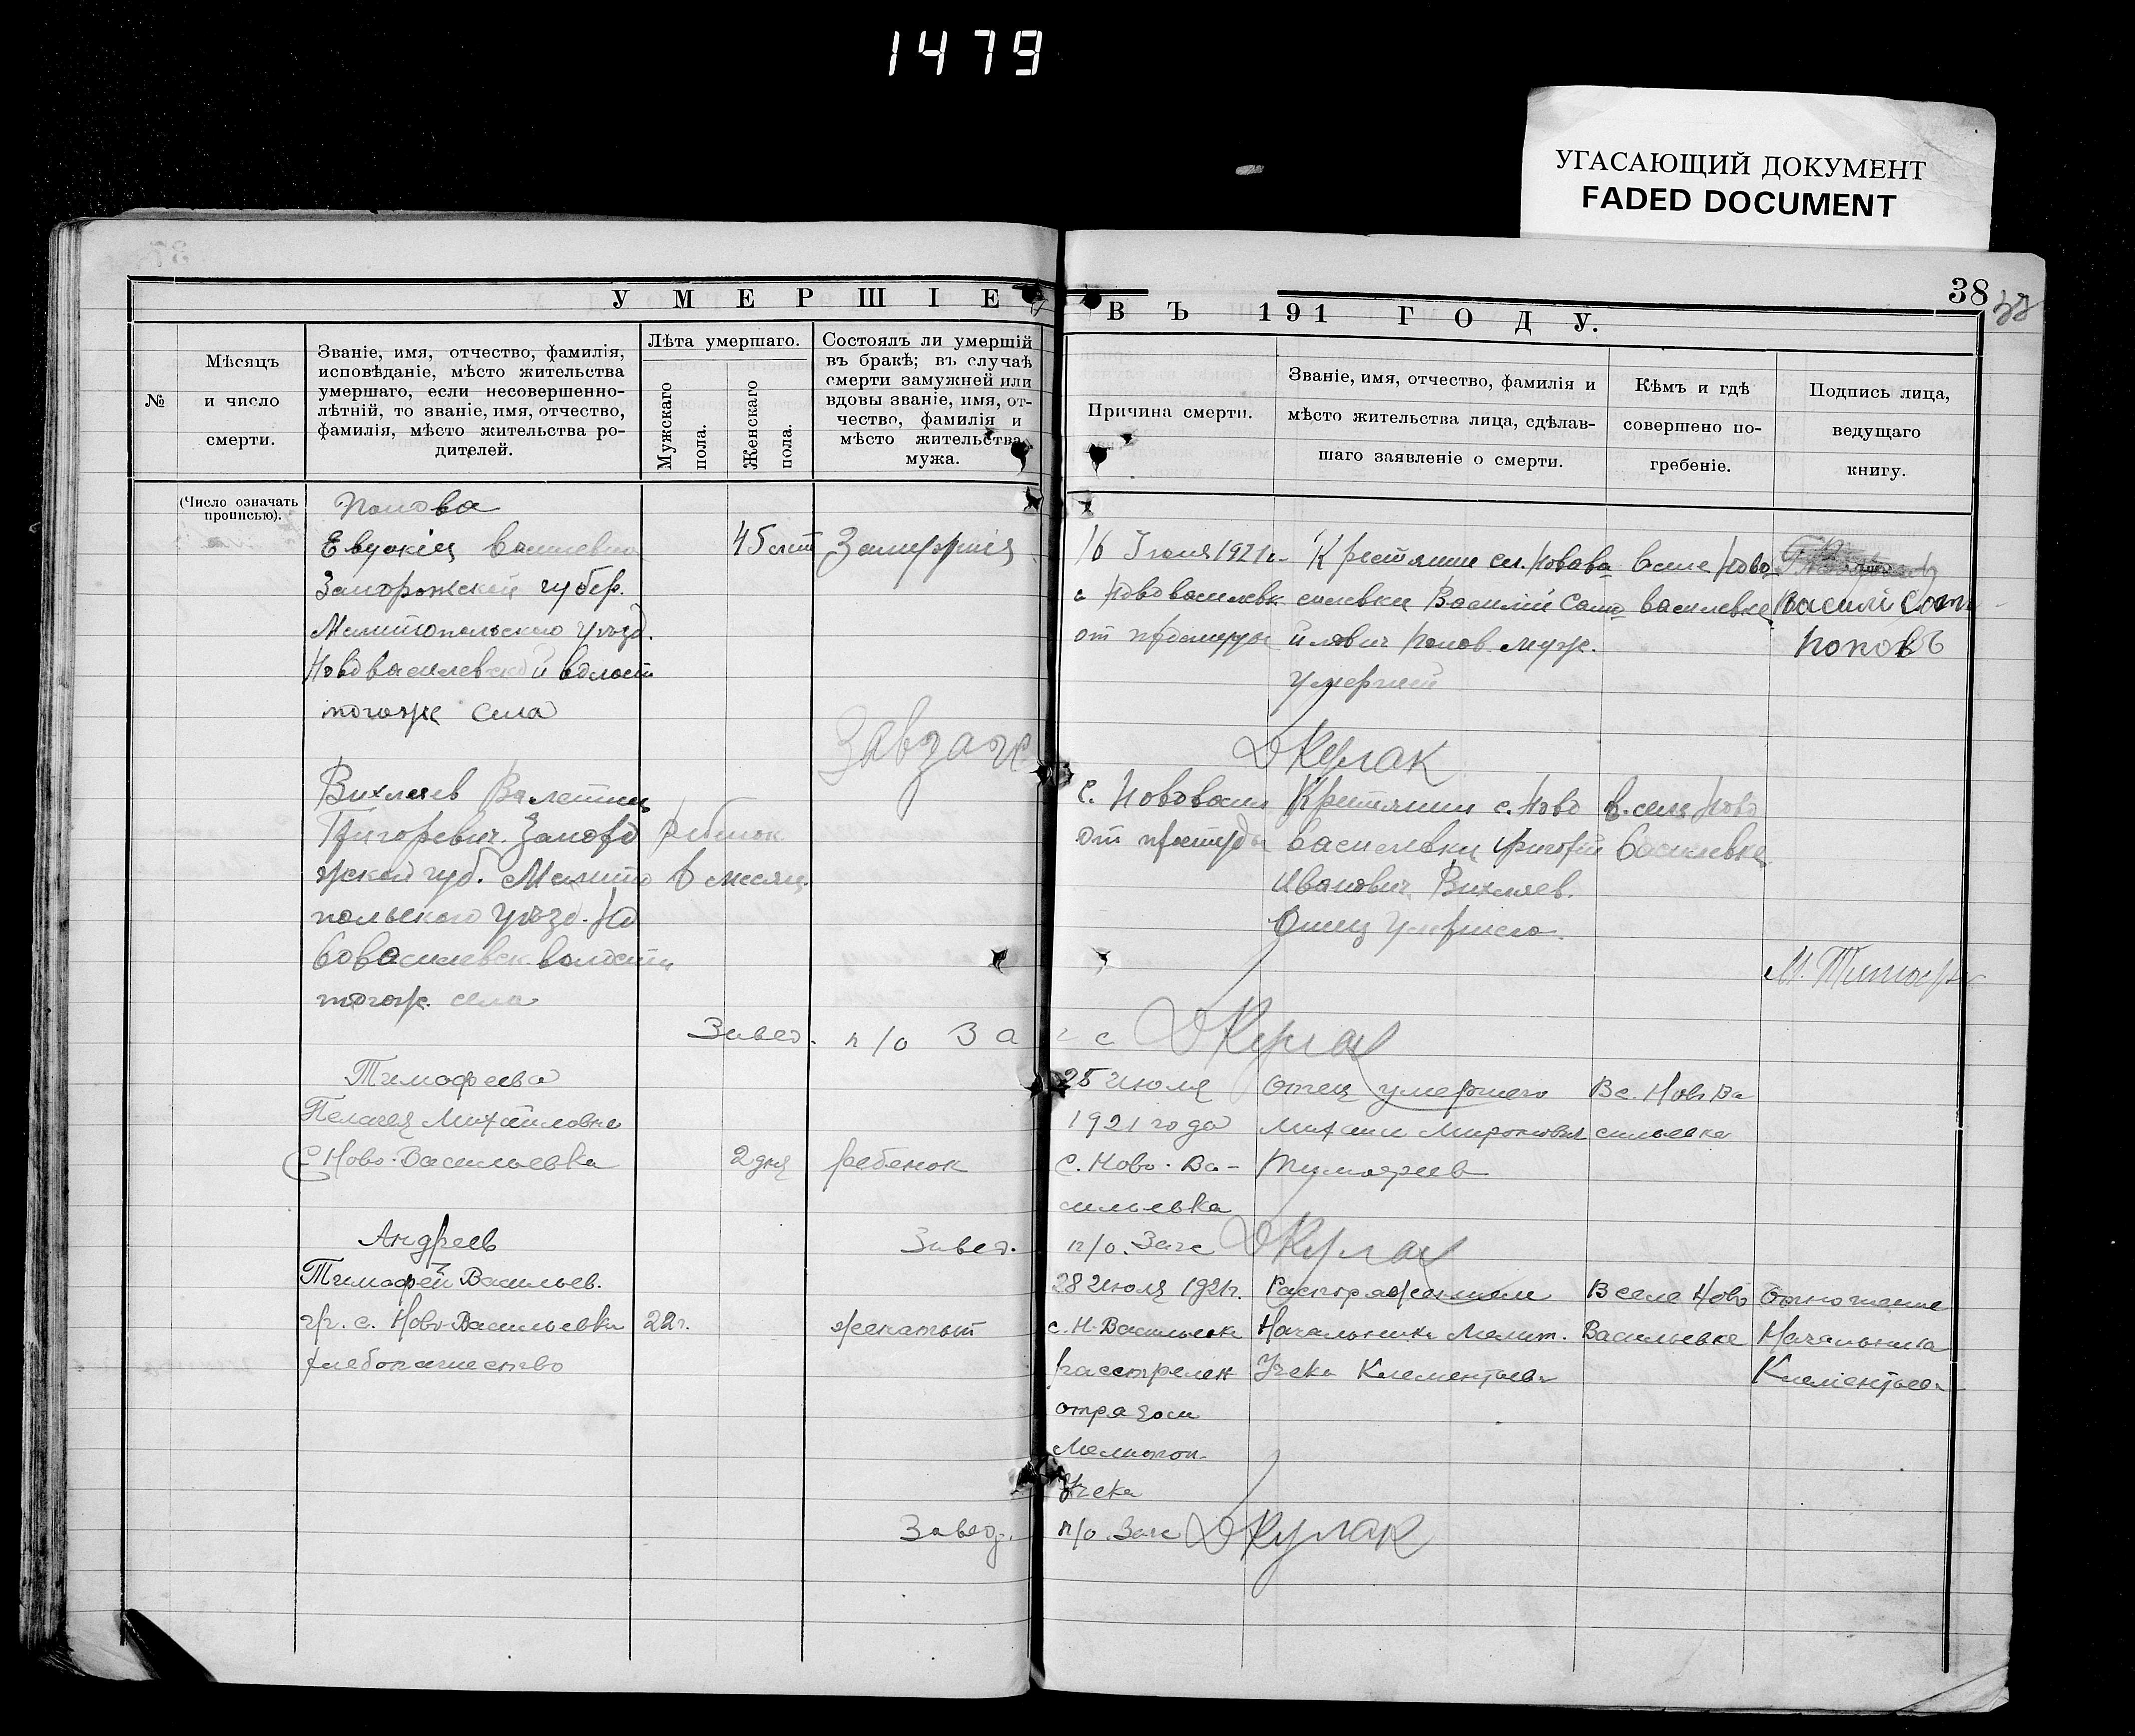 1479
УГАСАЮЩИЙ ДОКУМЕНТ
FADED DOCUMENT
38
38
УМЕРШІЕ
ВЪ 191 ГОДУ.
№
Мѣсяцъ
и число
смерти.
Званіе, имя, отчество, фамилія,
исповѣданіе, мѣсто жительства
умершаго, если несовершенно-
лѣтній, то званіе, имя, отчество,
фамилія, мѣсто жительства ро-
дителей.
Лѣта умершаго.
Мужскаго
пола.
Женскаго
пола.
Состоялъ ли умершій
въ бракѣ; въ случаѣ
смерти замужней или
вдовы званіе, имя, от-
чество, фамилія и
мѣсто жительства
мужа.
Причина смерти.
Званіе, имя, отчество, фамилія и
мѣсто жительства лица, сдѣлав-
шаго заявленіе о смерти.
Кѣмъ и гдѣ
совершено по-
гребеніе.
Подпись лица,
ведущаго
книгу.
(Число означать
прописью).
Попова
Евдокия Василевна
Запорожской губер.
Мелитопольского уѣзд.
Нововасилевской волост
тогоже села
45 лет
16 Іюля 1921 г.
с Нововасилевк
от простуды
Крестянин сел. Новава
силевки Василий Саmо
йлович Попов муж.
умершей
в селе Ново
василевке
Васили Сам
Поповъ
Завзагс
ДКулак
Вихляев Валетин
Григоревич. Запоро
жской губ. Мелито
польского уѣзд. Но
вовасилевск волости
тогож. села
ребинок
месяц.
с. Нововасил
от простуды
Крестянин с. Ново
василевки Григорий
Иванович Вихляев.
Отец умершего.
в. селе Ново
василевке
Завед. п/о Загс ДКулак
Тимофеева
Пелагея Михайловна
с. Ново-Васильевка
2 дня
ребенок
25 июля
1921 года
с. Ново-Ва-
сильевка
отец умершего
Михаил Миронович
Тимофеев
В с. Нов Ва
сильевке
Завед. п/о. Загс ДКулак
Андреев
Тимофей Васильев.
гр. с. Ново-Васильевки
хлебопашество
22 г.
женатый
28 июля 1921 г.
с. Н-Васильевк
расстрелен
отрядом
Мелитоп.
Учека
Распоряжением
Начальника Мелит.
Учека Клементьева
В селе Ново
Васильевке
Отношение
Начальника
Клементьева
Завед. п/о Загс ДКулак